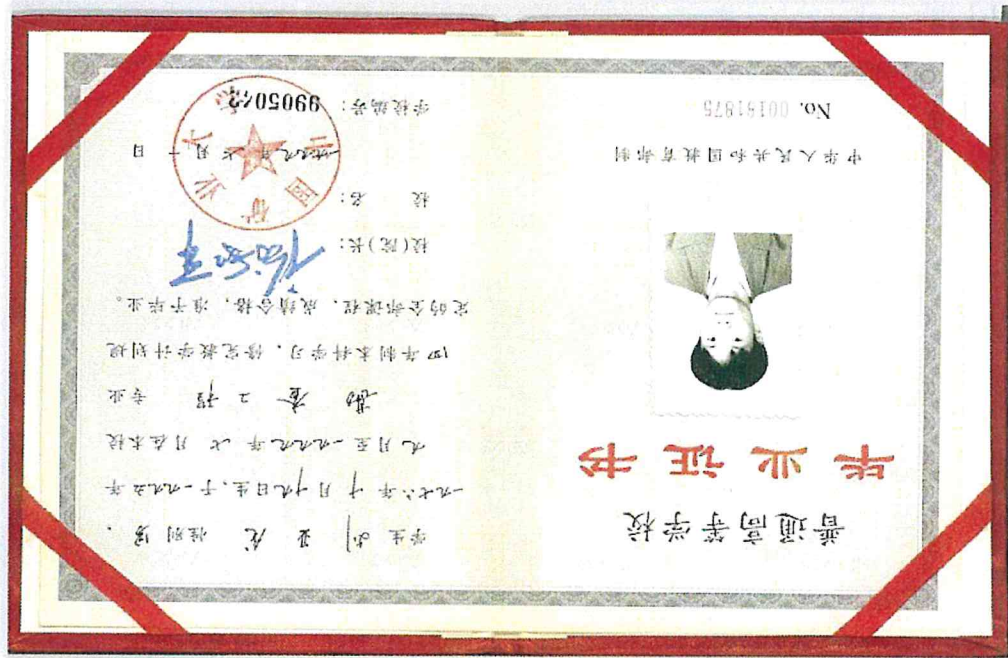 普通高等学校
毕业证书
中华人民共和国教育部制
No. 00181875
学生 刘 性别 男,
一九七六年十月十九日生,于一九九五年
九月至一九九九年七月在本校
勘查工程 专业
四年制本科学习,修完教学计划规
定的全部课程,成绩合格,准予毕业。
校(院)长:
校 名:
国矿业大学
一九九九年七月一日
学校编号:99050